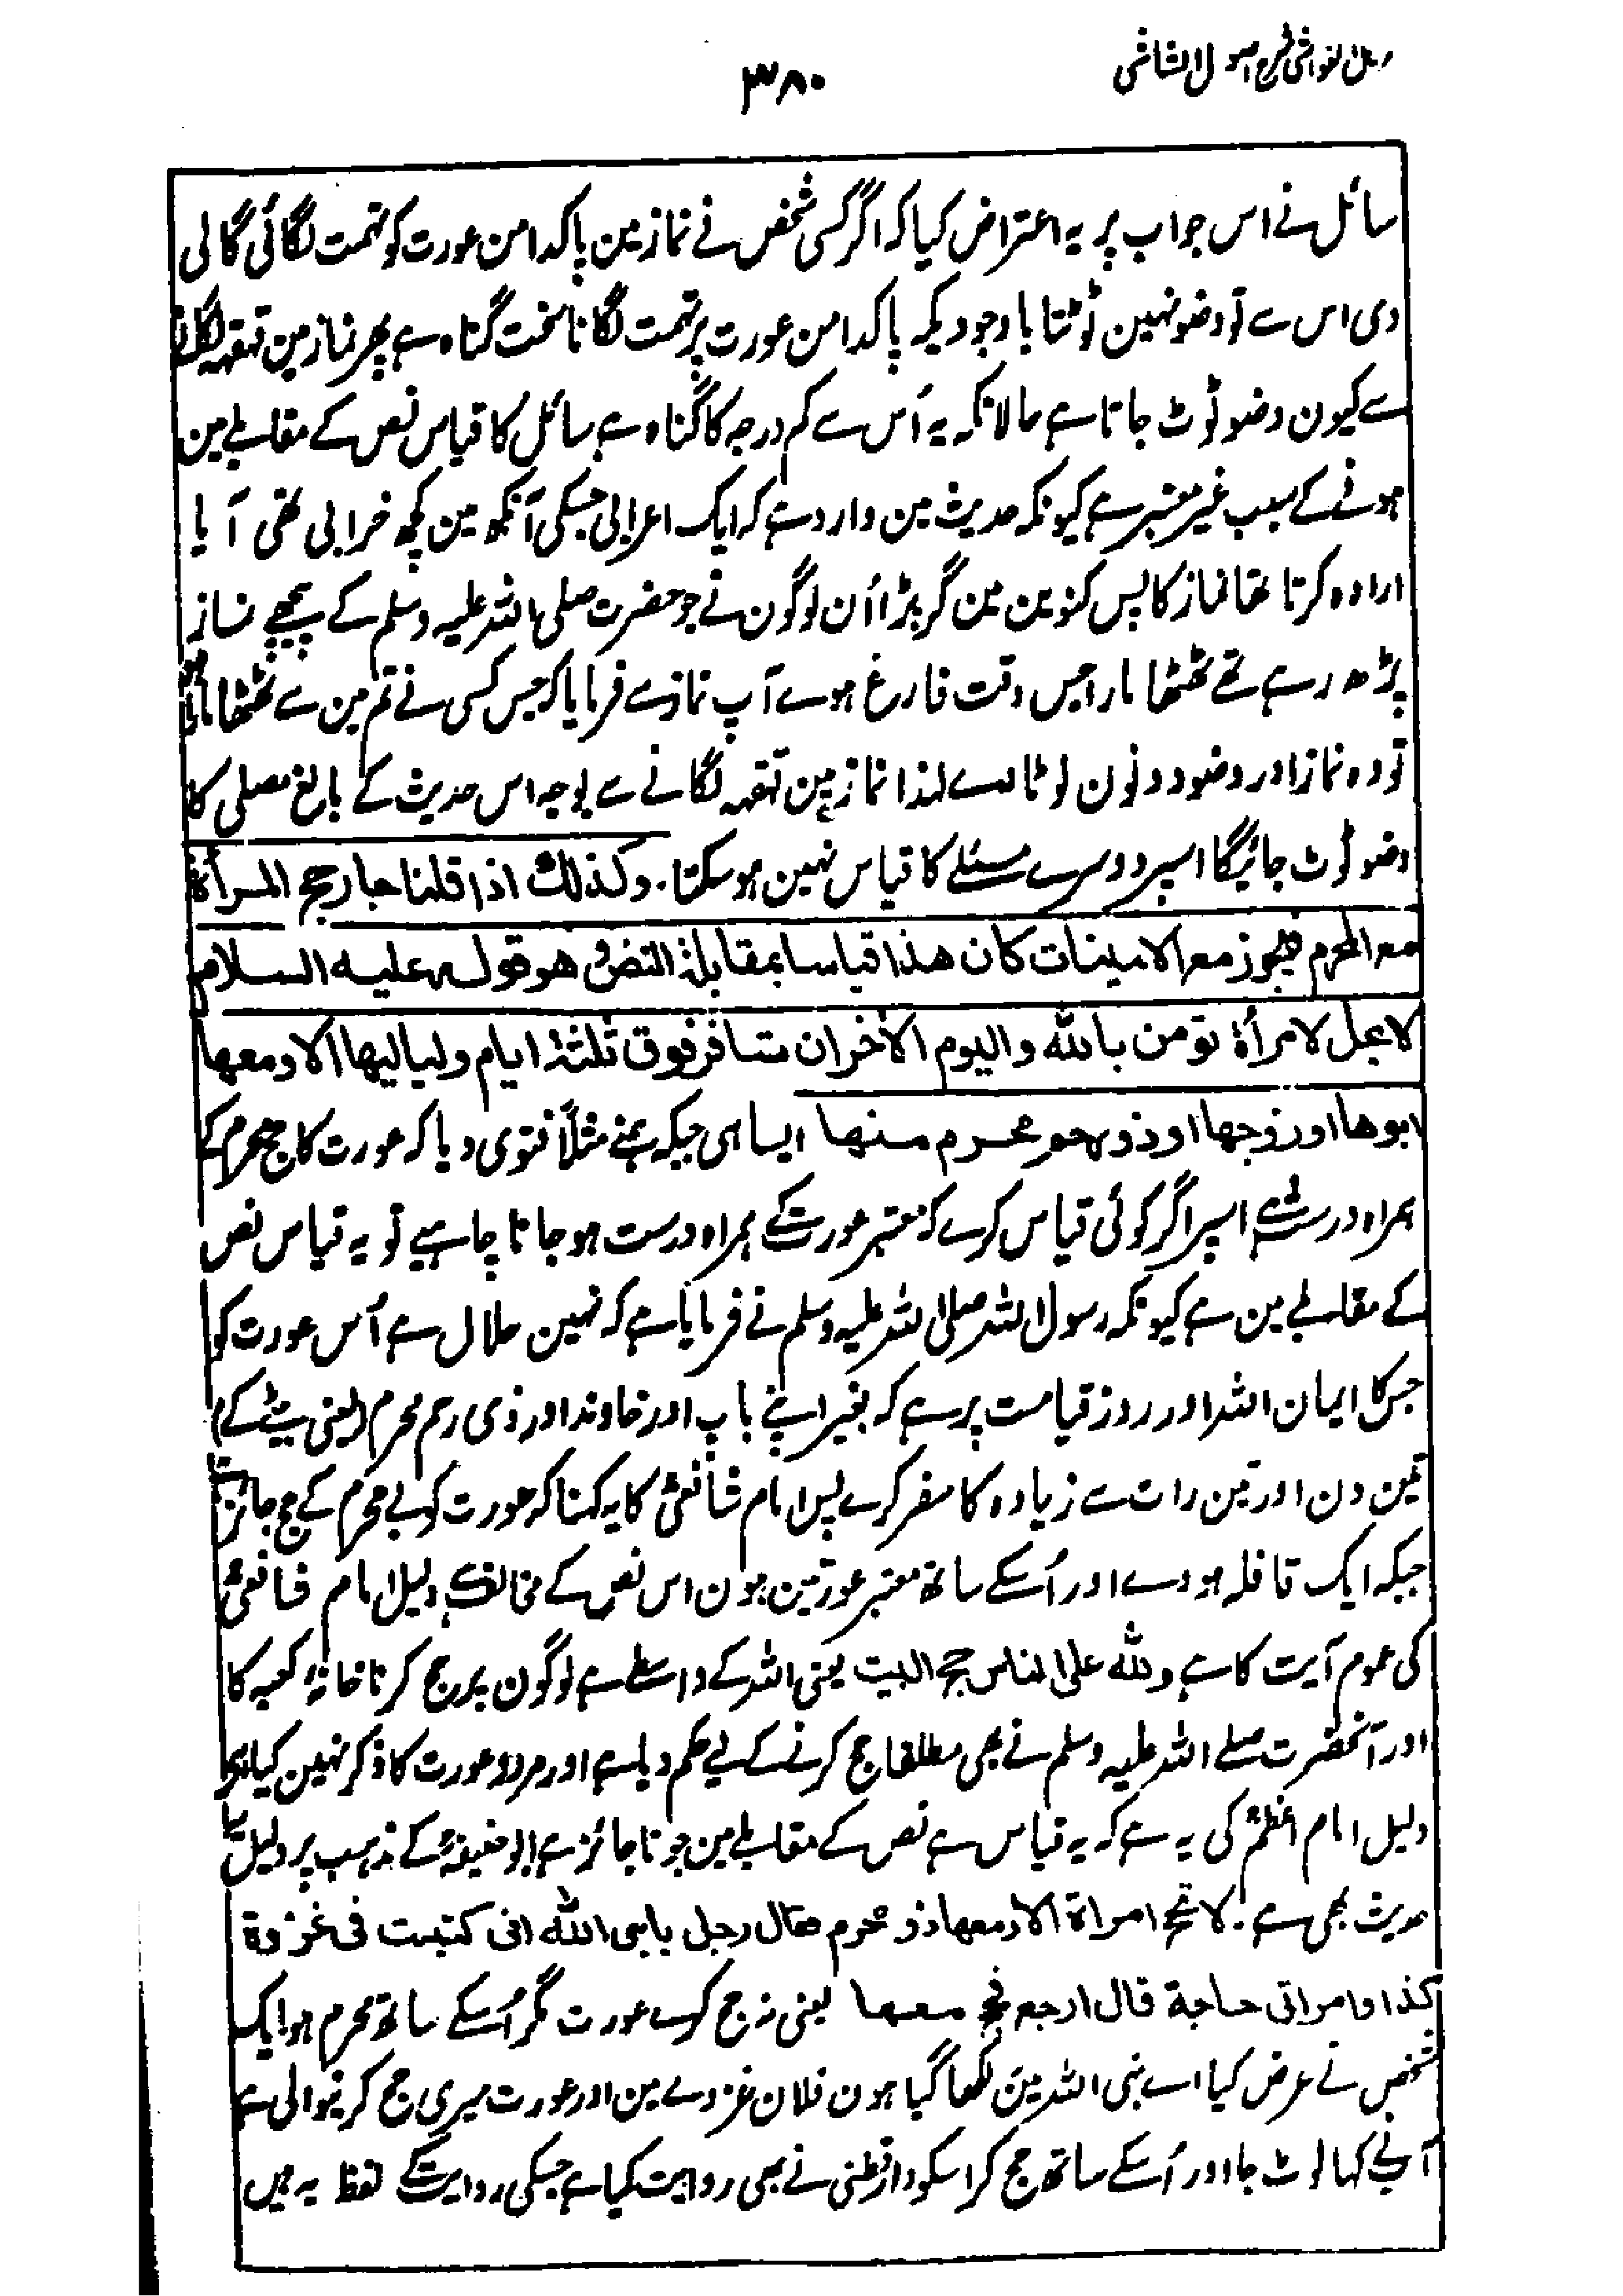 مزیل الغواشی شرح اصول الشاشی
۳۸۰
سائل نے اس جواب پر یہ اعتراض کیا کہ اگر کسی شخص نے نماز مین پاکدامن عورت کو تہمت لگائی گالی
دی اس سے تو وضو نہین ٹوٹتا باوجودیکہ پاکدامن عورت پر تہمت لگانا سخت گناہ ہے پھر نماز مین قہقہہ لگانے
سے کیون وضو ٹوٹ جاتا ہے حالانکہ یہ اُس سے کم درجہ کا گناہ ہے سائل کا قیاس نص کے مقابلے مین
ہونے کے سبب غیر معتبر ہے کیونکہ حدیث مین وارد ہے کہ ایک اعرابی جسکی آنکھ مین کچھ خرابی تھی آیا
ارادہ کرتا تھا نماز کا پس کنوین مین گر پڑا اُن لوگون نے جو حضرت صلی اللہ علیہ وسلم کے پیچھے نماز
پڑھ رہے تھے ٹھٹھا مارا جس وقت فارغ ہوے آپ نماز سے فرمایا کہ جس کسی نے تم مین سے ٹھٹھا مارا ہو
تو وہ نماز اور وضو دونون لوٹا لے لہذا نماز مین قہقہہ لگانے سے بوجہ اس حدیث کے بالغ مصلی کا
وضو ٹوٹ جائیگا اسپر دوسرے مسئلے کا قیاس نہین ہو سکتا۔ وکذلک اذا قلنا جاز حج المرأۃ
مع المحرم فیجوز مع الامینات کان ھذا قیاسا بمقابلۃ النص و ھو قولہ علیہ السلام
لا یحل لامرأۃ تومن باللہ والیوم الاٰخر ان تسافر فوق ثلثۃ ایام ولیالیھا الا ومعھا
ابوھا او زوجھا او ذو رحم محرم منھا ایسا ہی جبکہ ہمنے مثلاً فتوی دیا کہ عورت کا حج محرم کے
ہمراہ درست ہے اسپر اگر کوئی قیاس کرے کہ معتبر عورت کے ہمراہ درست ہو جانا چاہیے تو یہ قیاس نص
کے مقابلے مین ہے کیونکہ رسول اللہ صلی اللہ علیہ وسلم نے فرمایا ہے کہ نہین حلال ہے اُس عورت کو
جس کا ایمان اللہ اور روز قیامت پر ہے کہ بغیر اپنے باپ اور خاوند اور ذی رحم محرم (یعنی بیٹے کے)
تین دن اور تین رات سے زیادہ کا سفر کرے پس امام شافعیؒ کا یہ کہنا کہ عورت کو بے محرم کے حج جائز ہے
جبکہ ایک قافلہ ہووے اور اُسکے ساتھ معتبر عورتین ہون اس نص کے مخالف ہے دلیل امام شافعیؒ
کی عموم آیت کا ہے وللہ علی الناس حج البیت یعنی اللہ کے واسطے ہے لوگون پر حج کرنا خانۂ کعبہ کا
اور آنحضرت صلے اللہ علیہ وسلم نے بھی مطلقا حج کرنے کے لیے حکم دیا ہے اور مرد و عورت کا ذکر نہین کیا اور
دلیل امام اعظمؒ کی یہ ہے کہ یہ قیاس ہے نص کے مقابلے مین جو ناجائز ہے ابو حنیفہؒ کے مذہب پر دلیل یہ
حدیث بھی ہے۔ لا تحج امراۃ الا ومعھا ذو محرم فقال رجل یا نبی اللہ انی کتبت فی غزوۃ
کذا وامراتی حاجۃ قال ارجع فحج معھا یعنی نہ حج کرے عورت مگر اُسکے ساتھ محرم ہو ایک
شخص نے عرض کیا اے نبی اللہ مین لکھا گیا ہون فلان غزوے مین اور عورت میری حج کرنیوالی ہے
آپنے کہا لوٹ جا اور اُسکے ساتھ حج کر اسکو دارقطنی نے بھی روایت کیا ہے جسکی روایت کے لفظ یہ ہیں